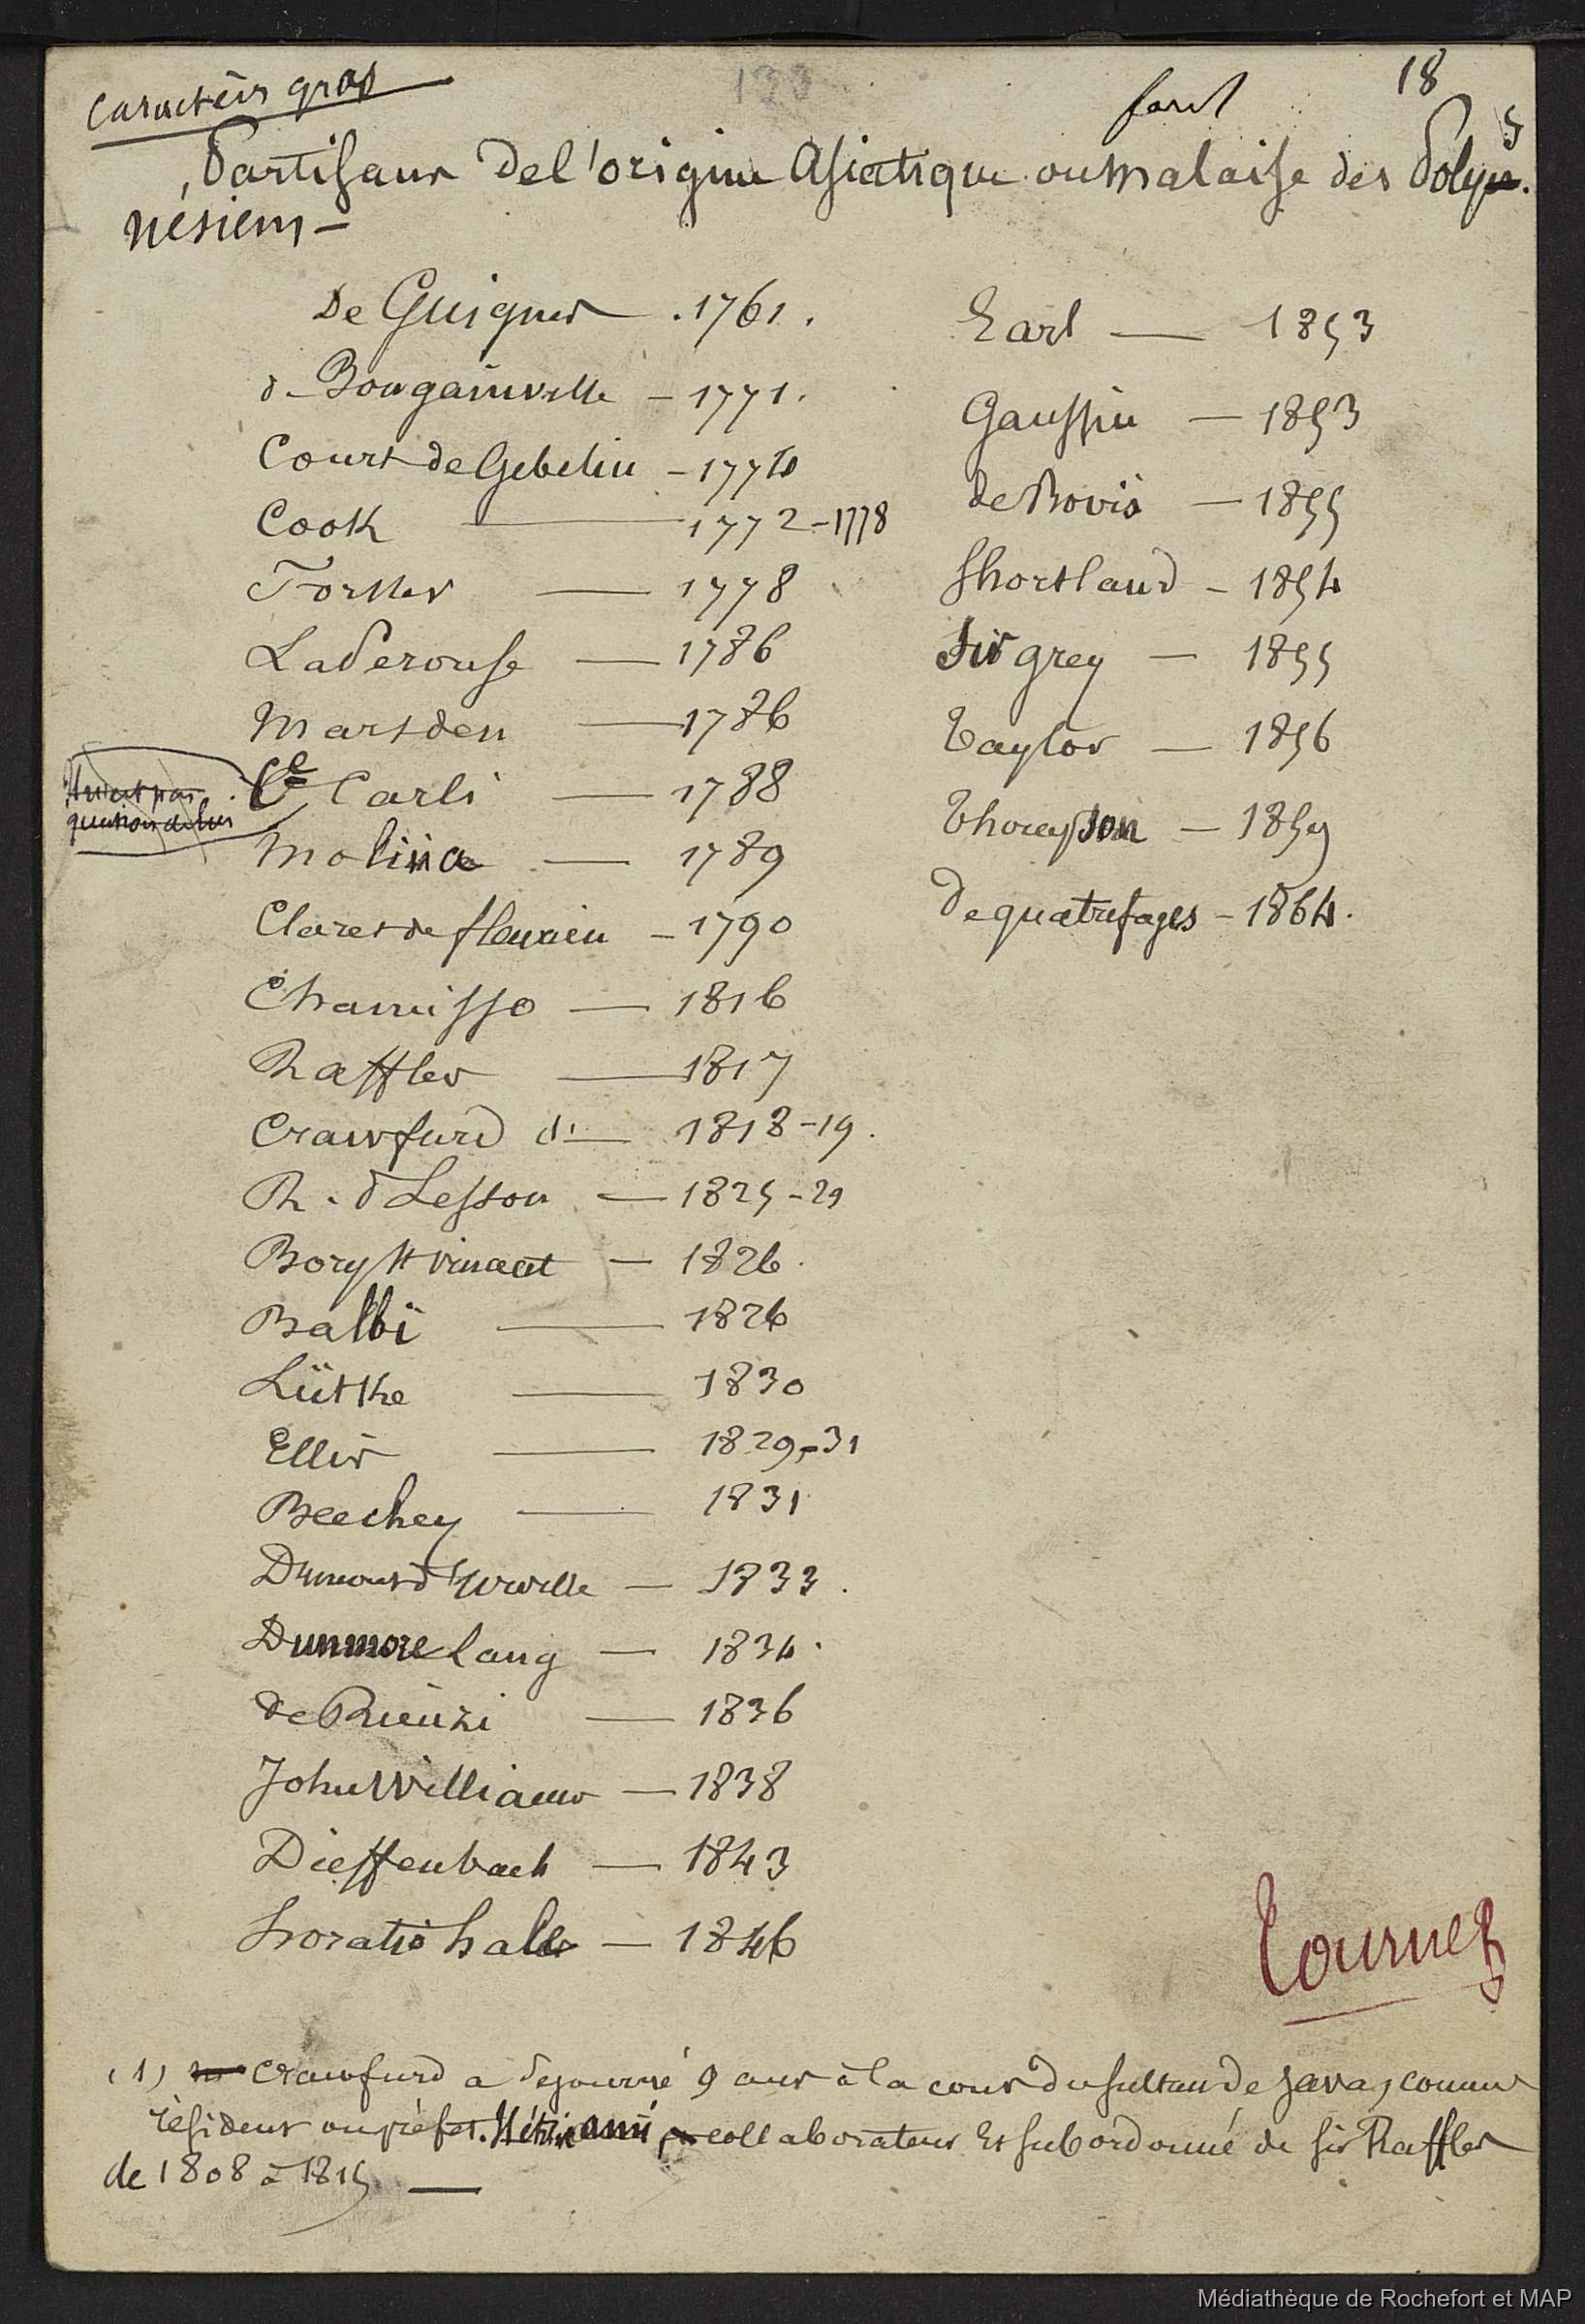 Caractères gras
18
Partisans de l'origine Asiatique ou malaise des Poly-
nésiens —
De Guignes — 1761.
de Bougainville — 1771.
Court de Gebelin — 177
Cook — 1772-1778
Forster — 1778
La Perouse — 1786
Marsden — 1786
Cte Carli — 1788
Il n'est pas
question de lui
Molina — 1789
Claret de fleurieu — 1790
Chamisso — 1816
Raffles — 1817
Crawfurd (1) — 1818-19.
R. P. Lesson — 1825-29
Bory St vincent — 1826.
Balbi — 1826
Lütke — 1830
Ellis — 1829-31
Beechey — 1831
Dumont d'Urville — 1833.
Dunmore Lang — 1834.
de Rienzi — 1836
John Williams — 1838
Dieffenbach — 1843
horatio hale — 1846
Earl — 1853
Gaussin — 1853
de Bovis — 1855
Shortland — 1854
Sir grey — 1855
Taylor — 1856
Thompson — 1859
De quatrefages — 1864.
Tournez
(1) Crawfurd a séjourné 9 ans à la cour du sultan de Java, comme
résident ou préfet. Il était ami, collaborateur et subordonné de sir Raffles
de 1808 à 1815. —
Médiathèque de Rochefort et MAP